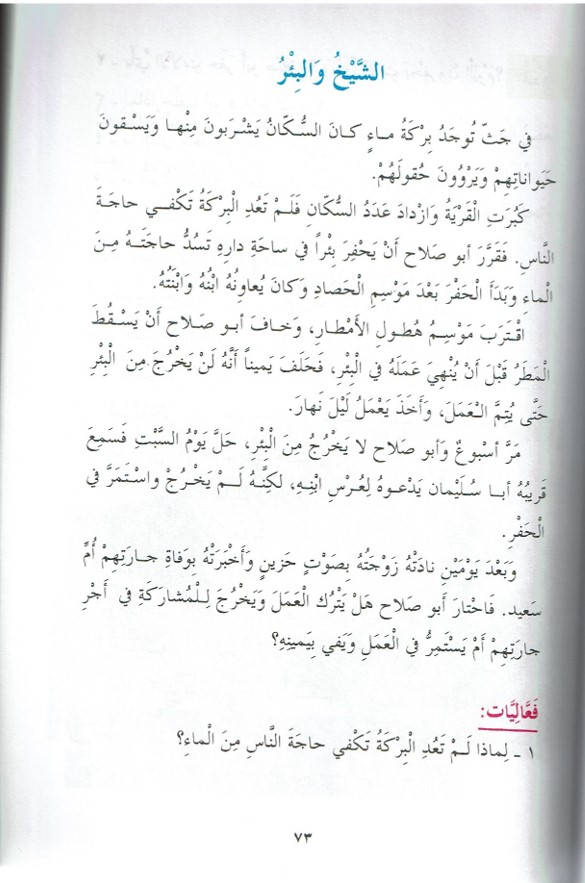 الشَّيْخُ وَالبِئْرُ
في جَثّ تُوجَدُ بِرْكَةُ مـاءٍ كـانَ السُّكّانُ يَشْرَبونَ مِنْهـا وَيَسْـقونَ
حَيَواناتِهِمْ وَيَرْوُونَ حُقولَهُمْ.
كَبُرَتِ الْقَرْيَةُ وَازْدادَ عَدَدُ السُّكّانِ فَلَـمْ تَعُدِ الْبِرْكَةُ تَكْفـي حاجَةَ
النّاسِ. فَقَرَّرَ أبو صَلاح أَنْ يَحْفِرَ بِئْراً في ساحَةِ دارِهِ تَسُدُّ حاجَتَـهُ مِـنَ
الْماء وَبَدَأَ الْحَفْرَ بَعْدَ مَوْسِمِ الْحَصادِ وَكانَ يُعاوِنُهُ ابْنُهُ وَابْنَتُهُ.
اقْتَرَبَ مَوْسِـمُ هُطـولِ الأَمْطـارِ، وَخـافَ أبـو صَـلاح أَنْ يَسْـقُطَ
الْمَطَرُ قَبْلَ أَنْ يُنْهِيَ عَمَلَهُ في الْبِئْرِ، فَحَلَفَ يَميناً أَنَّهُ لَنْ يَخْرُجَ مِنَ الْبِئْرِ
حَتَّى يُتِمَّ الْـعَمَلَ، وَأَخَذَ يَعْمَلُ لَيْلَ نَهارَ.
مَرَّ أُسْبوعٌ وَأبو صَلاح لا يَخْرُجُ مِنَ الْبِئْرِ، حَلَّ يَوْمُ السَّبْتِ فَسَمِعَ
قَريبُهُ أبـا سُـلَيْمان يَدْعـوهُ لِعُرْسِ ابْنِـهِ، لكِنَّـهُ لَـمْ يَخْـرُجْ واسْـتَمَرَّ في
الْحَفْرِ.
وَبَعْدَ يَوْمَيْنِ نادَتْهُ زَوْجَتُهُ بِصَوْتٍ حَزينٍ وَأَخْبَرَتْهُ بِوَفاةِ جـارَتِهِمْ أُمِّ
سَعيد. فَاحْتارَ أَبو صَلاح هَلْ يَتْرُك الْعَمَلَ وَيَخْرُجَ لِـلْمُشارَكَةِ في أَجْرِ
جارَتِهِمْ أَمْ يَسْتَمِرُّ في الْعَمَلِ وَيَفي بِيَمينِهِ؟
فَعَّالِيَّات:
١ - لِماذا لَـمْ تَعُدِ الْبِرْكَةُ تَكْفي حاجَةَ النَّاسِ مِنَ الْماءِ؟
٧٣